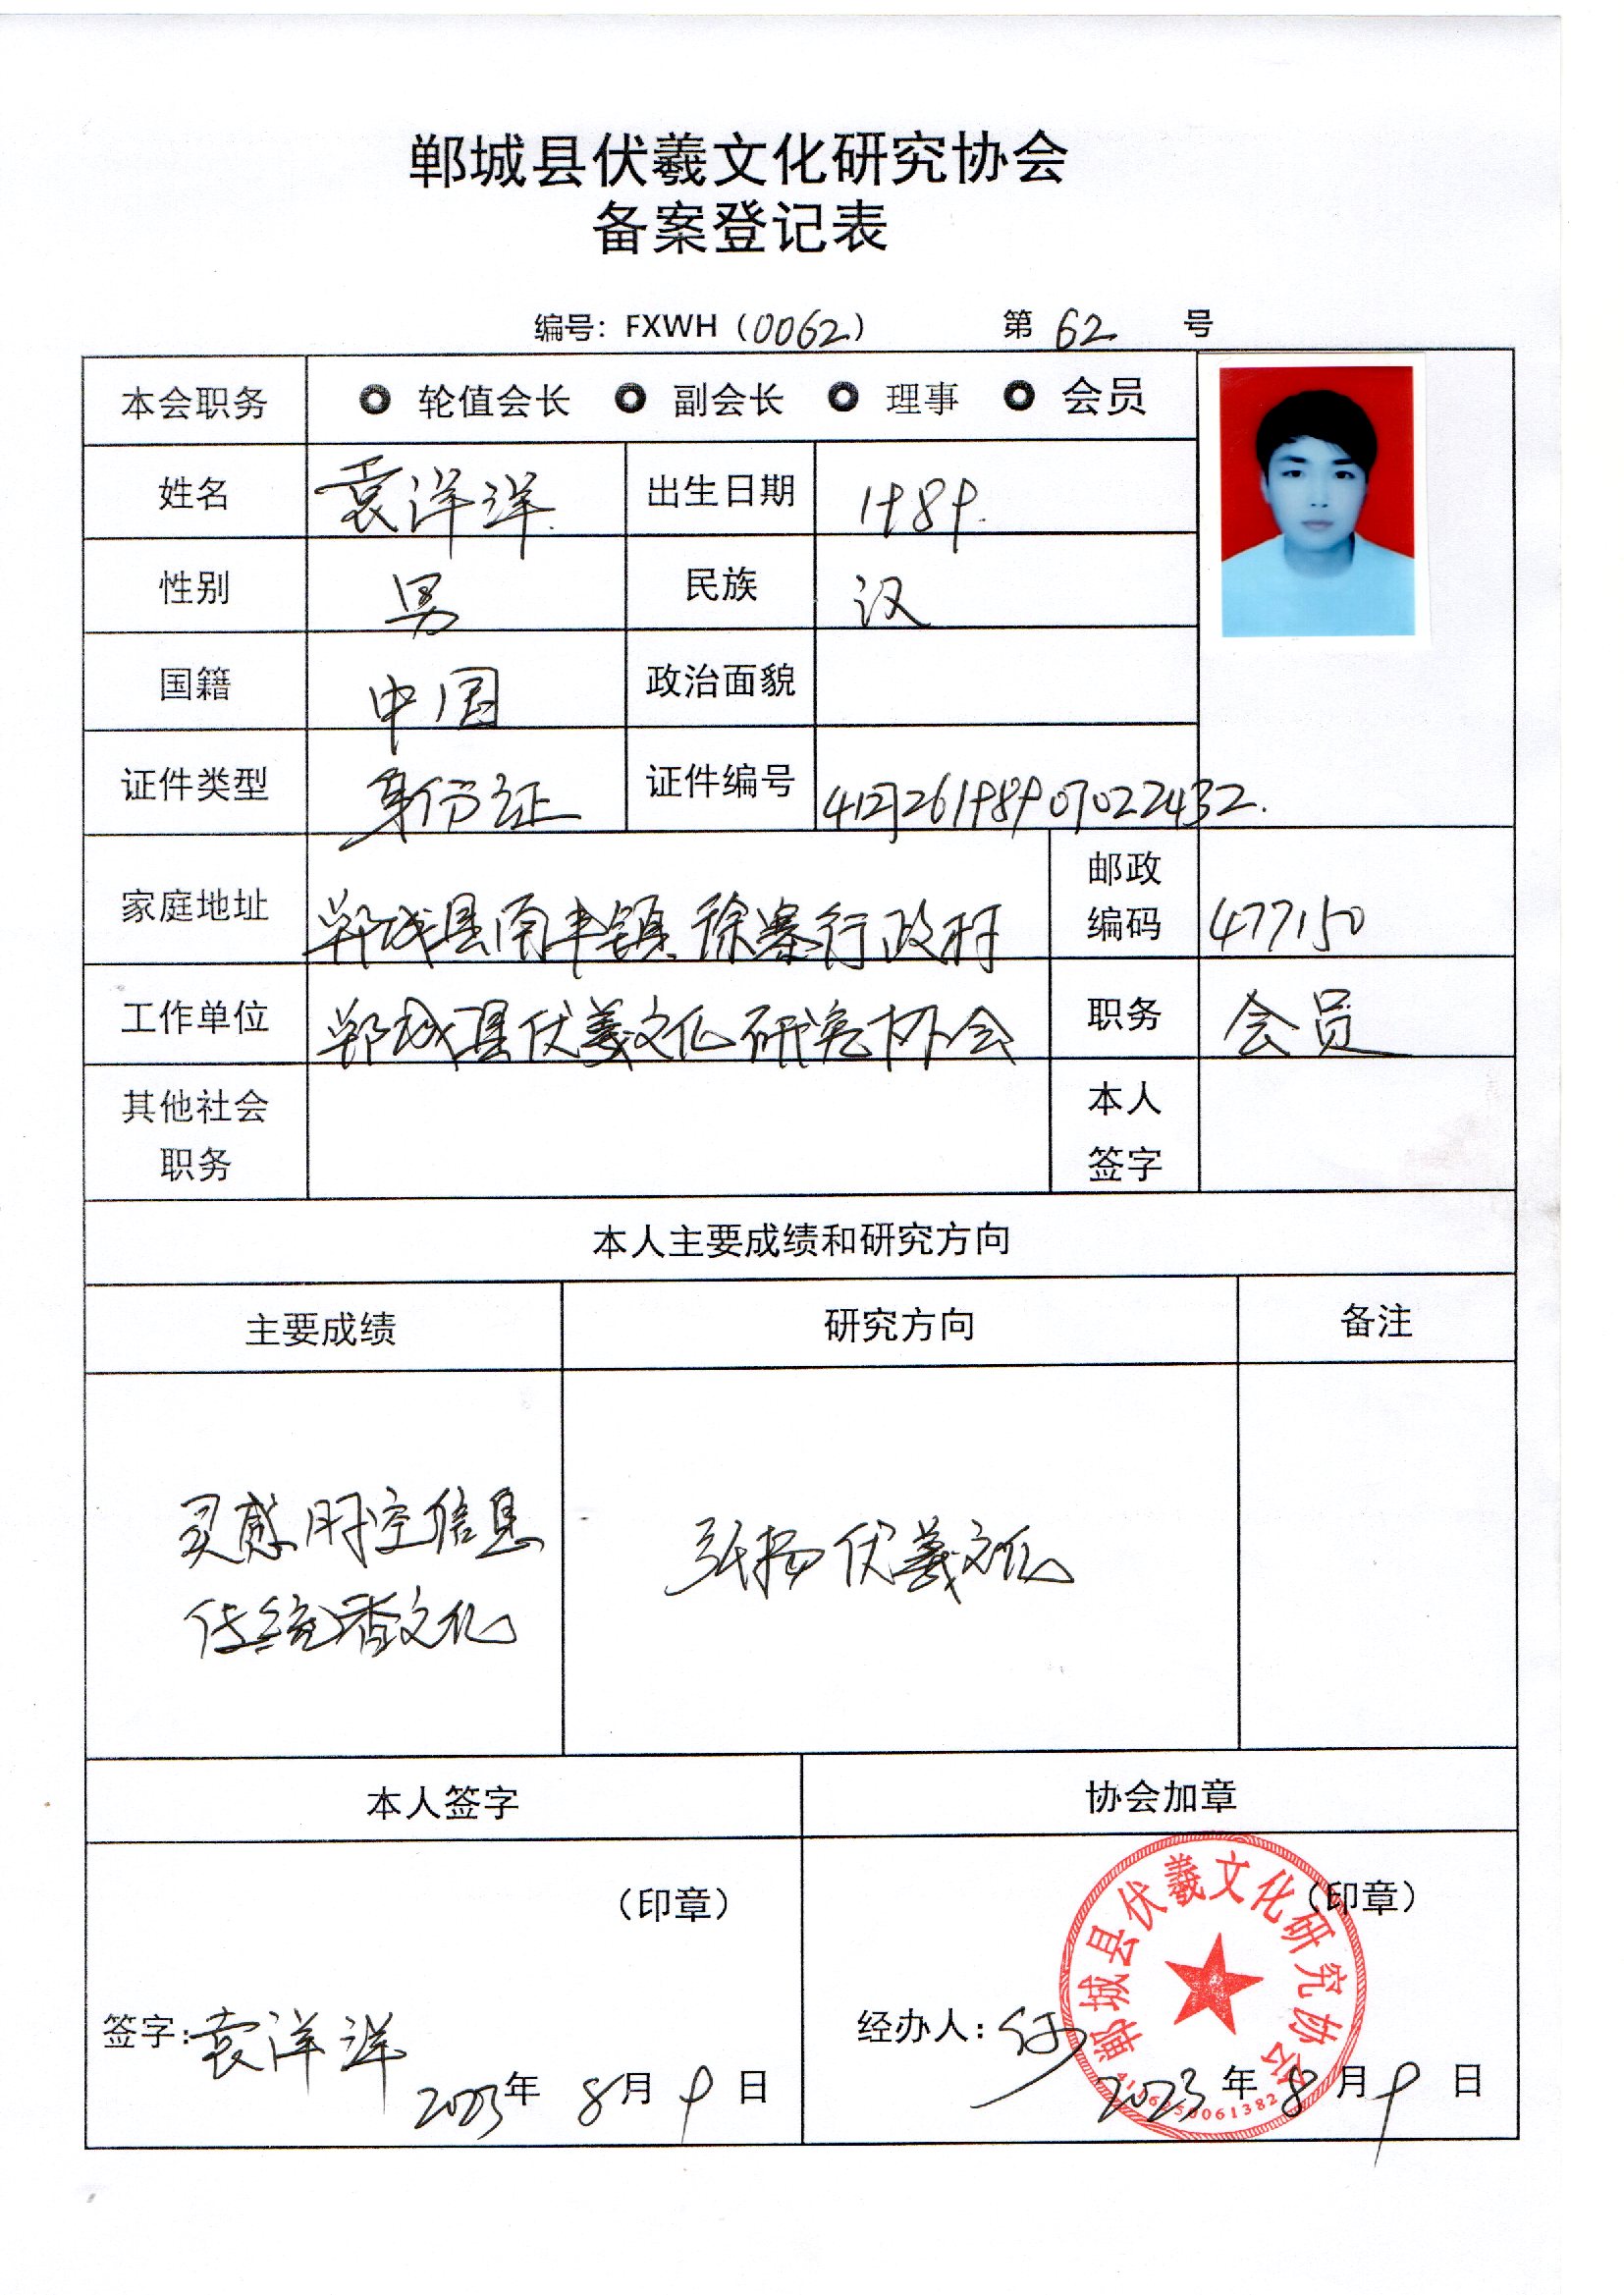 郸城县伏羲文化研究协会
备案登记表
编号：FXWH（0062） 第 62 号
本会职务 轮值会长 副会长 理事 会员
姓名 袁洋洋 出生日期 1989.
性别 男 民族 汉
国籍 中国 政治面貌
证件类型 身份证 证件编号 412726198907022432.
家庭地址 郸城县南丰镇徐寨行政村 邮政编码 477150
工作单位 郸城县伏羲文化研究协会 职务 会员
其他社会职务 本人签字
本人主要成绩和研究方向
主要成绩 研究方向 备注
灵感时空信息
传统香文化
弘扬伏羲文化
本人签字 协会加章
（印章） （印章）
签字：袁洋洋
2023年 8月 9日
经办人：
2023年 8月 9日
郸城县伏羲文化研究协会